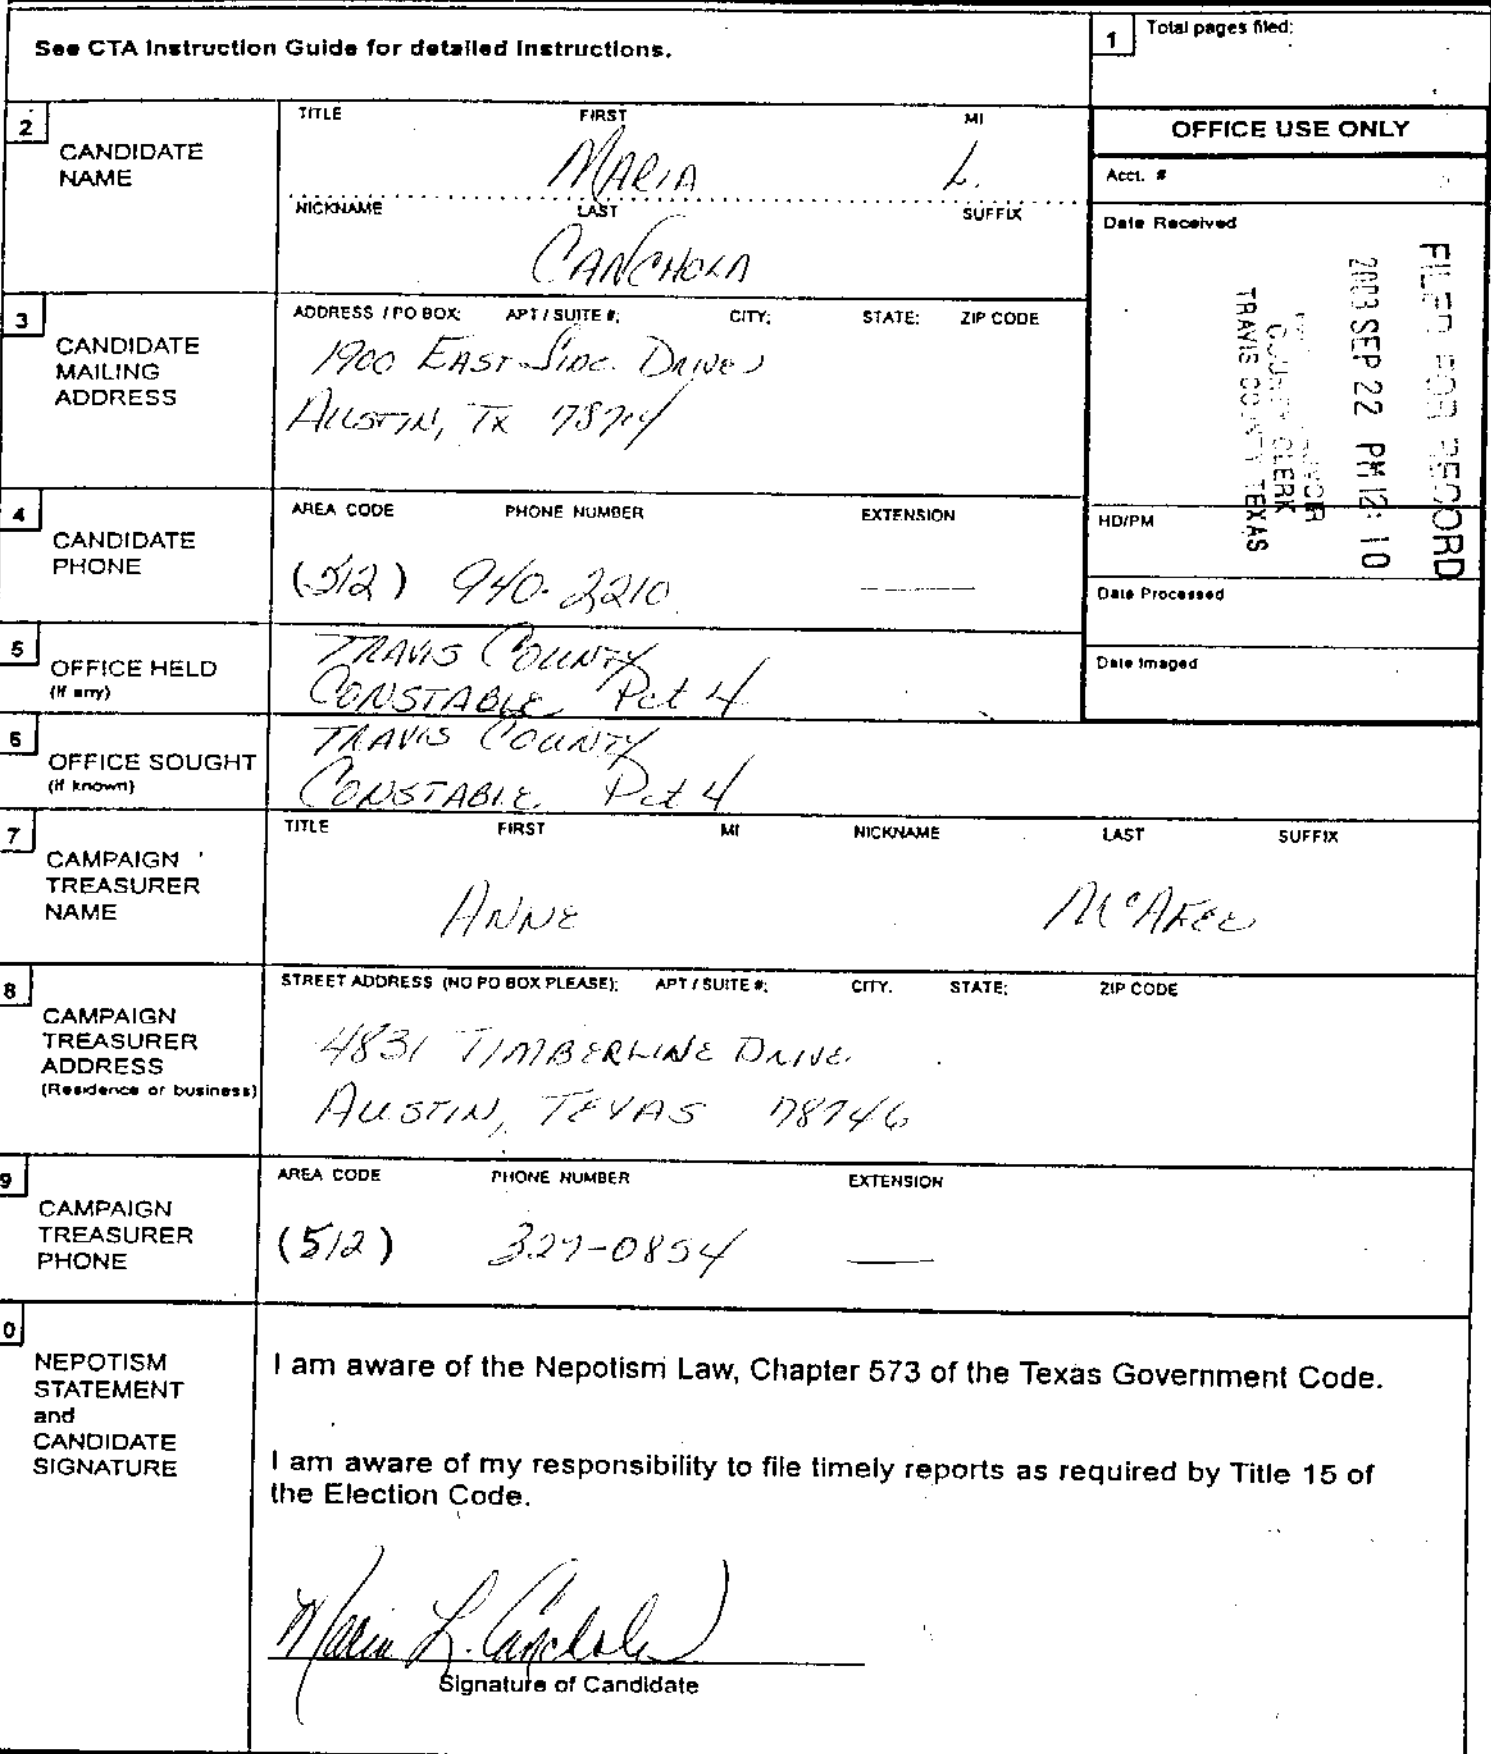 See CTA Instruction Guide for detailed Instructions.
1 Total pages filed:
2 CANDIDATE NAME
TITLE FIRST MI
MARIA L.
NICKNAME LAST SUFFIX
CANCHOLA
OFFICE USE ONLY
Acct. #
Date Received
FILED FOR RECORD
2003 SEP 22 PM 12:10
COUNTY CLERK
TRAVIS COUNTY TEXAS
HD/PM
Date Processed
Date Imaged
3 CANDIDATE MAILING ADDRESS
ADDRESS / PO BOX; APT / SUITE #; CITY; STATE; ZIP CODE
1900 EAST SIDE DRIVE
AUSTIN, TX
4 CANDIDATE PHONE
AREA CODE PHONE NUMBER EXTENSION
(512) 940-2210 —
5 OFFICE HELD (if any)
TRAVIS COUNTY
CONSTABLE Pct 4
6 OFFICE SOUGHT (if known)
TRAVIS COUNTY
CONSTABLE Pct 4
7 CAMPAIGN TREASURER NAME
TITLE FIRST MI NICKNAME LAST SUFFIX
ANNE McAFEE
8 CAMPAIGN TREASURER ADDRESS (Residence or business)
STREET ADDRESS (NO PO BOX PLEASE); APT / SUITE #; CITY. STATE; ZIP CODE
4831 TIMBERLINE DRIVE
AUSTIN, TEXAS 78746
9 CAMPAIGN TREASURER PHONE
AREA CODE PHONE NUMBER EXTENSION
(512) 327-0854 —
0 NEPOTISM STATEMENT and CANDIDATE SIGNATURE
I am aware of the Nepotism Law, Chapter 573 of the Texas Government Code.
I am aware of my responsibility to file timely reports as required by Title 15 of
the Election Code.
Maria L. Canchola
Signature of Candidate